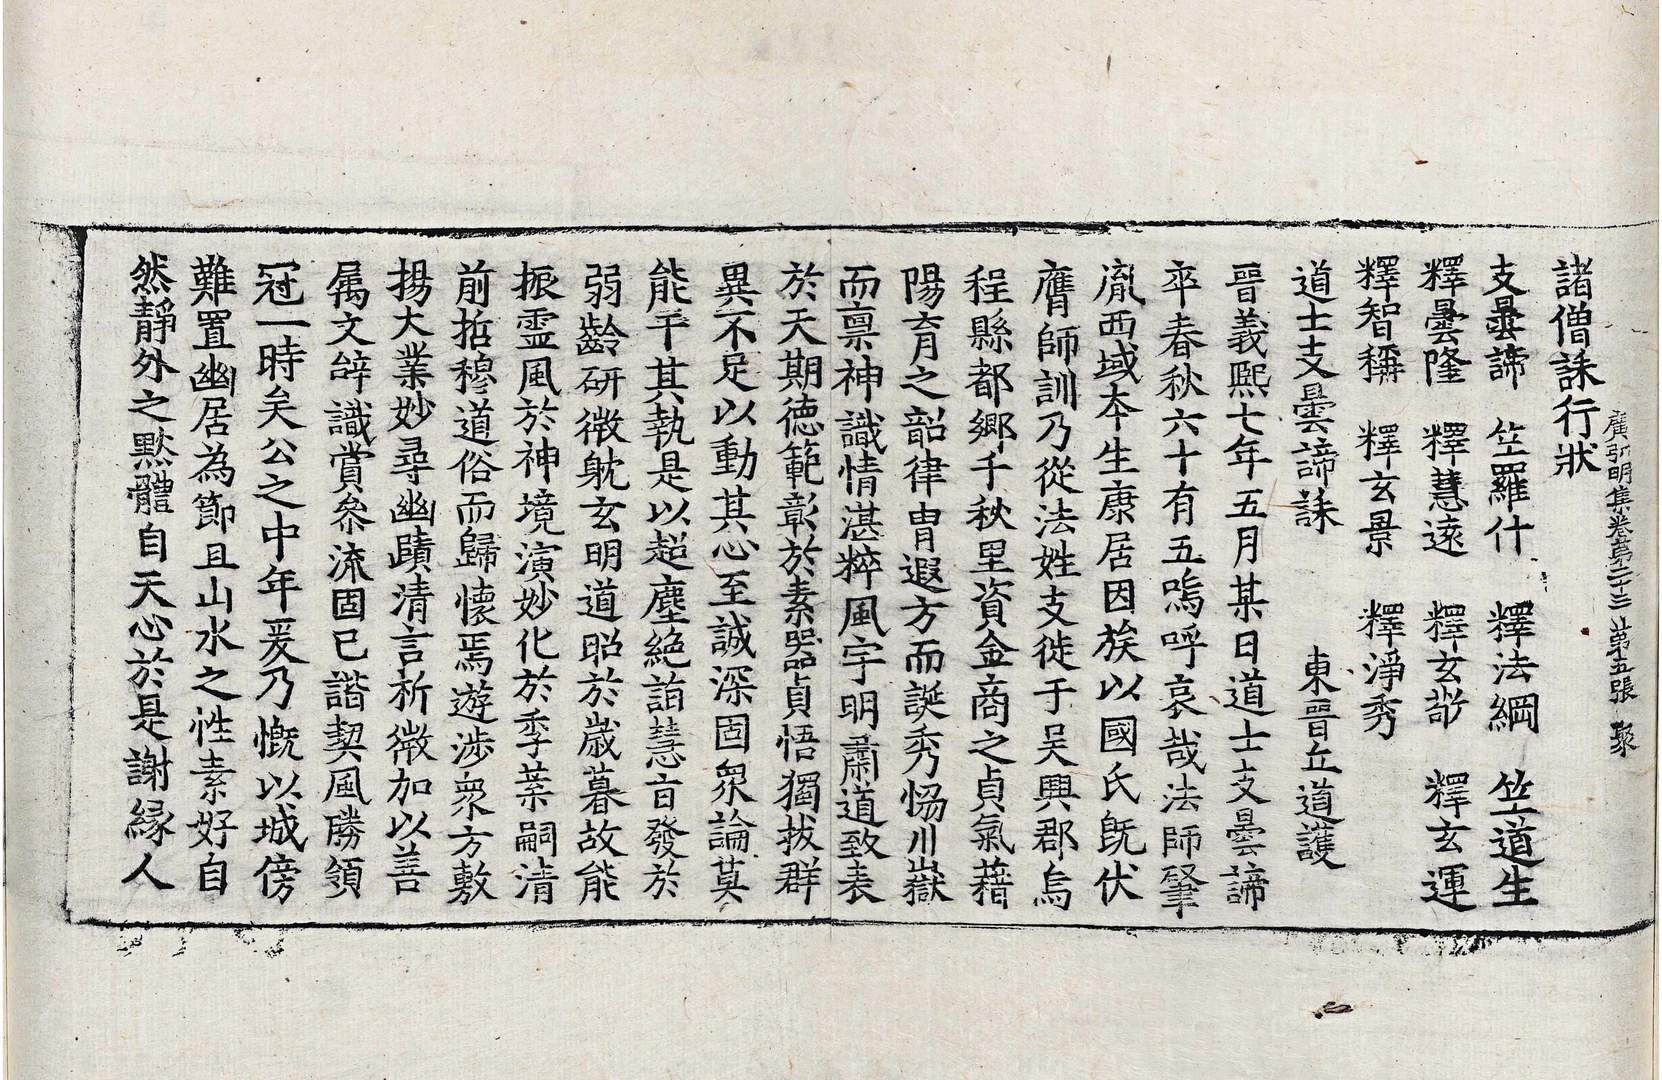 諸僧誄行狀
廣弘明集卷第二十三 第五張 聚
支曇諦 竺羅什 釋法綱 竺道生
釋曇隆 釋慧遠 釋玄敬 釋玄運
釋智稱 釋玄景 釋淨秀
道士支曇諦誄 東晉丘道護
晉義熙七年五月某日道士支曇諦
卒春秋六十有五嗚呼哀哉法師肇
胤西域夲生康居因族以國氏既伏
膺師訓乃從法姓支徙于吳興郡烏
程縣都鄉千秋里資金商之貞氣藉
陽育之韶律胄遐方而誕秀協川嶽
而禀神識情湛粹風宇明肅道致表
於天期德範彰於素器貞悟獨拔群
異不足以動其心至誠深固衆論莫
能干其執是以超塵絶詣慧音發於
弱齡研微躭玄明道昭於歲暮故能
振霊風於神境演妙化於季葉嗣清
前哲穆道俗而歸懷焉遊涉衆方敷
揚大業妙尋幽賾清言析微加以善
属文辝識賞叅流固已諧契風勝領
冠一時矣公之中年爰乃慨以城傍
難置幽居為節且山水之性素好自
然靜外之默體自天心於是謝緣人